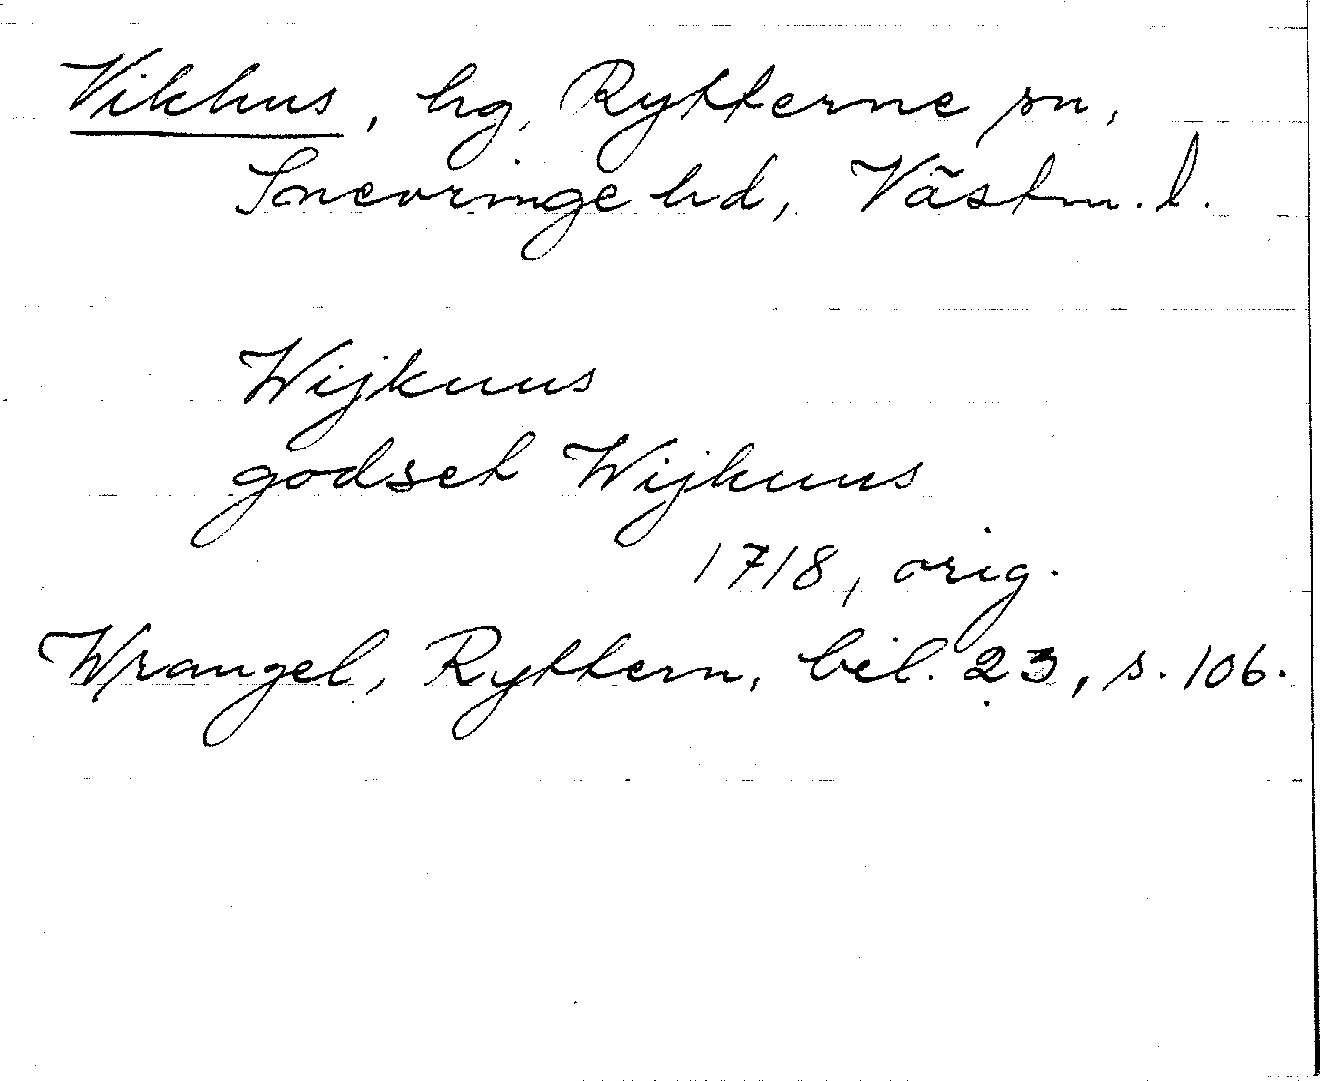 Vikhus, hg, Rytterne sn,
Snevringe hd, Västm. l.
Wijkuus
godset Wijkuus
1718, orig.
Wrangel, Ryttern, bil. 23, s. 106.